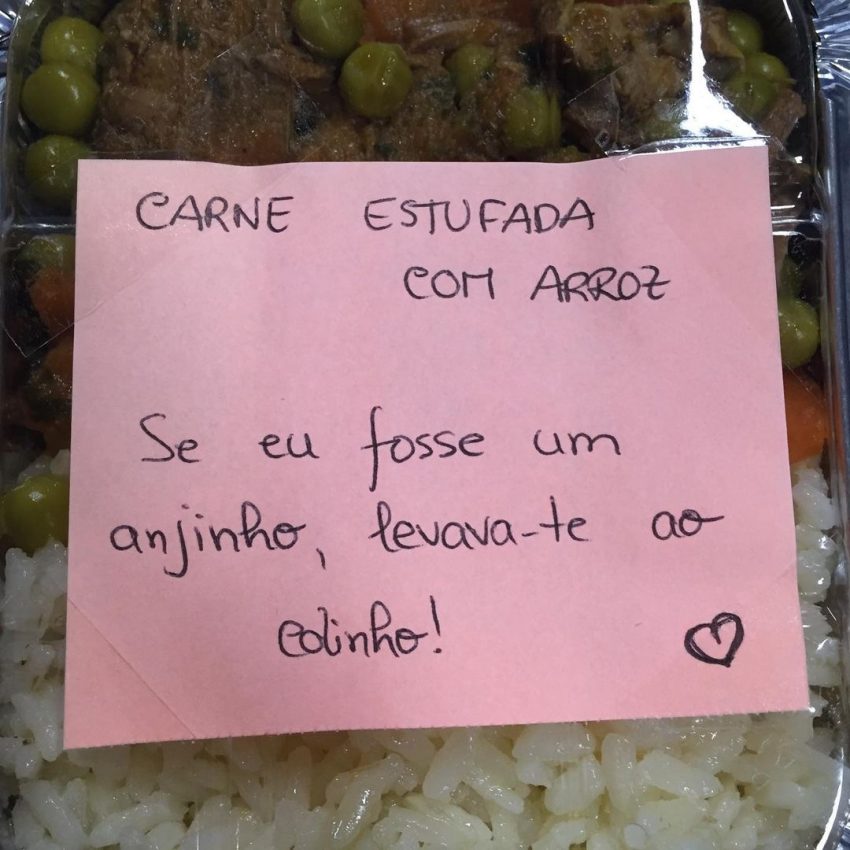 CARNE ESTUFADA
COM ARROZ
Se eu fosse um
anjinho, levava-te ao
colinho!